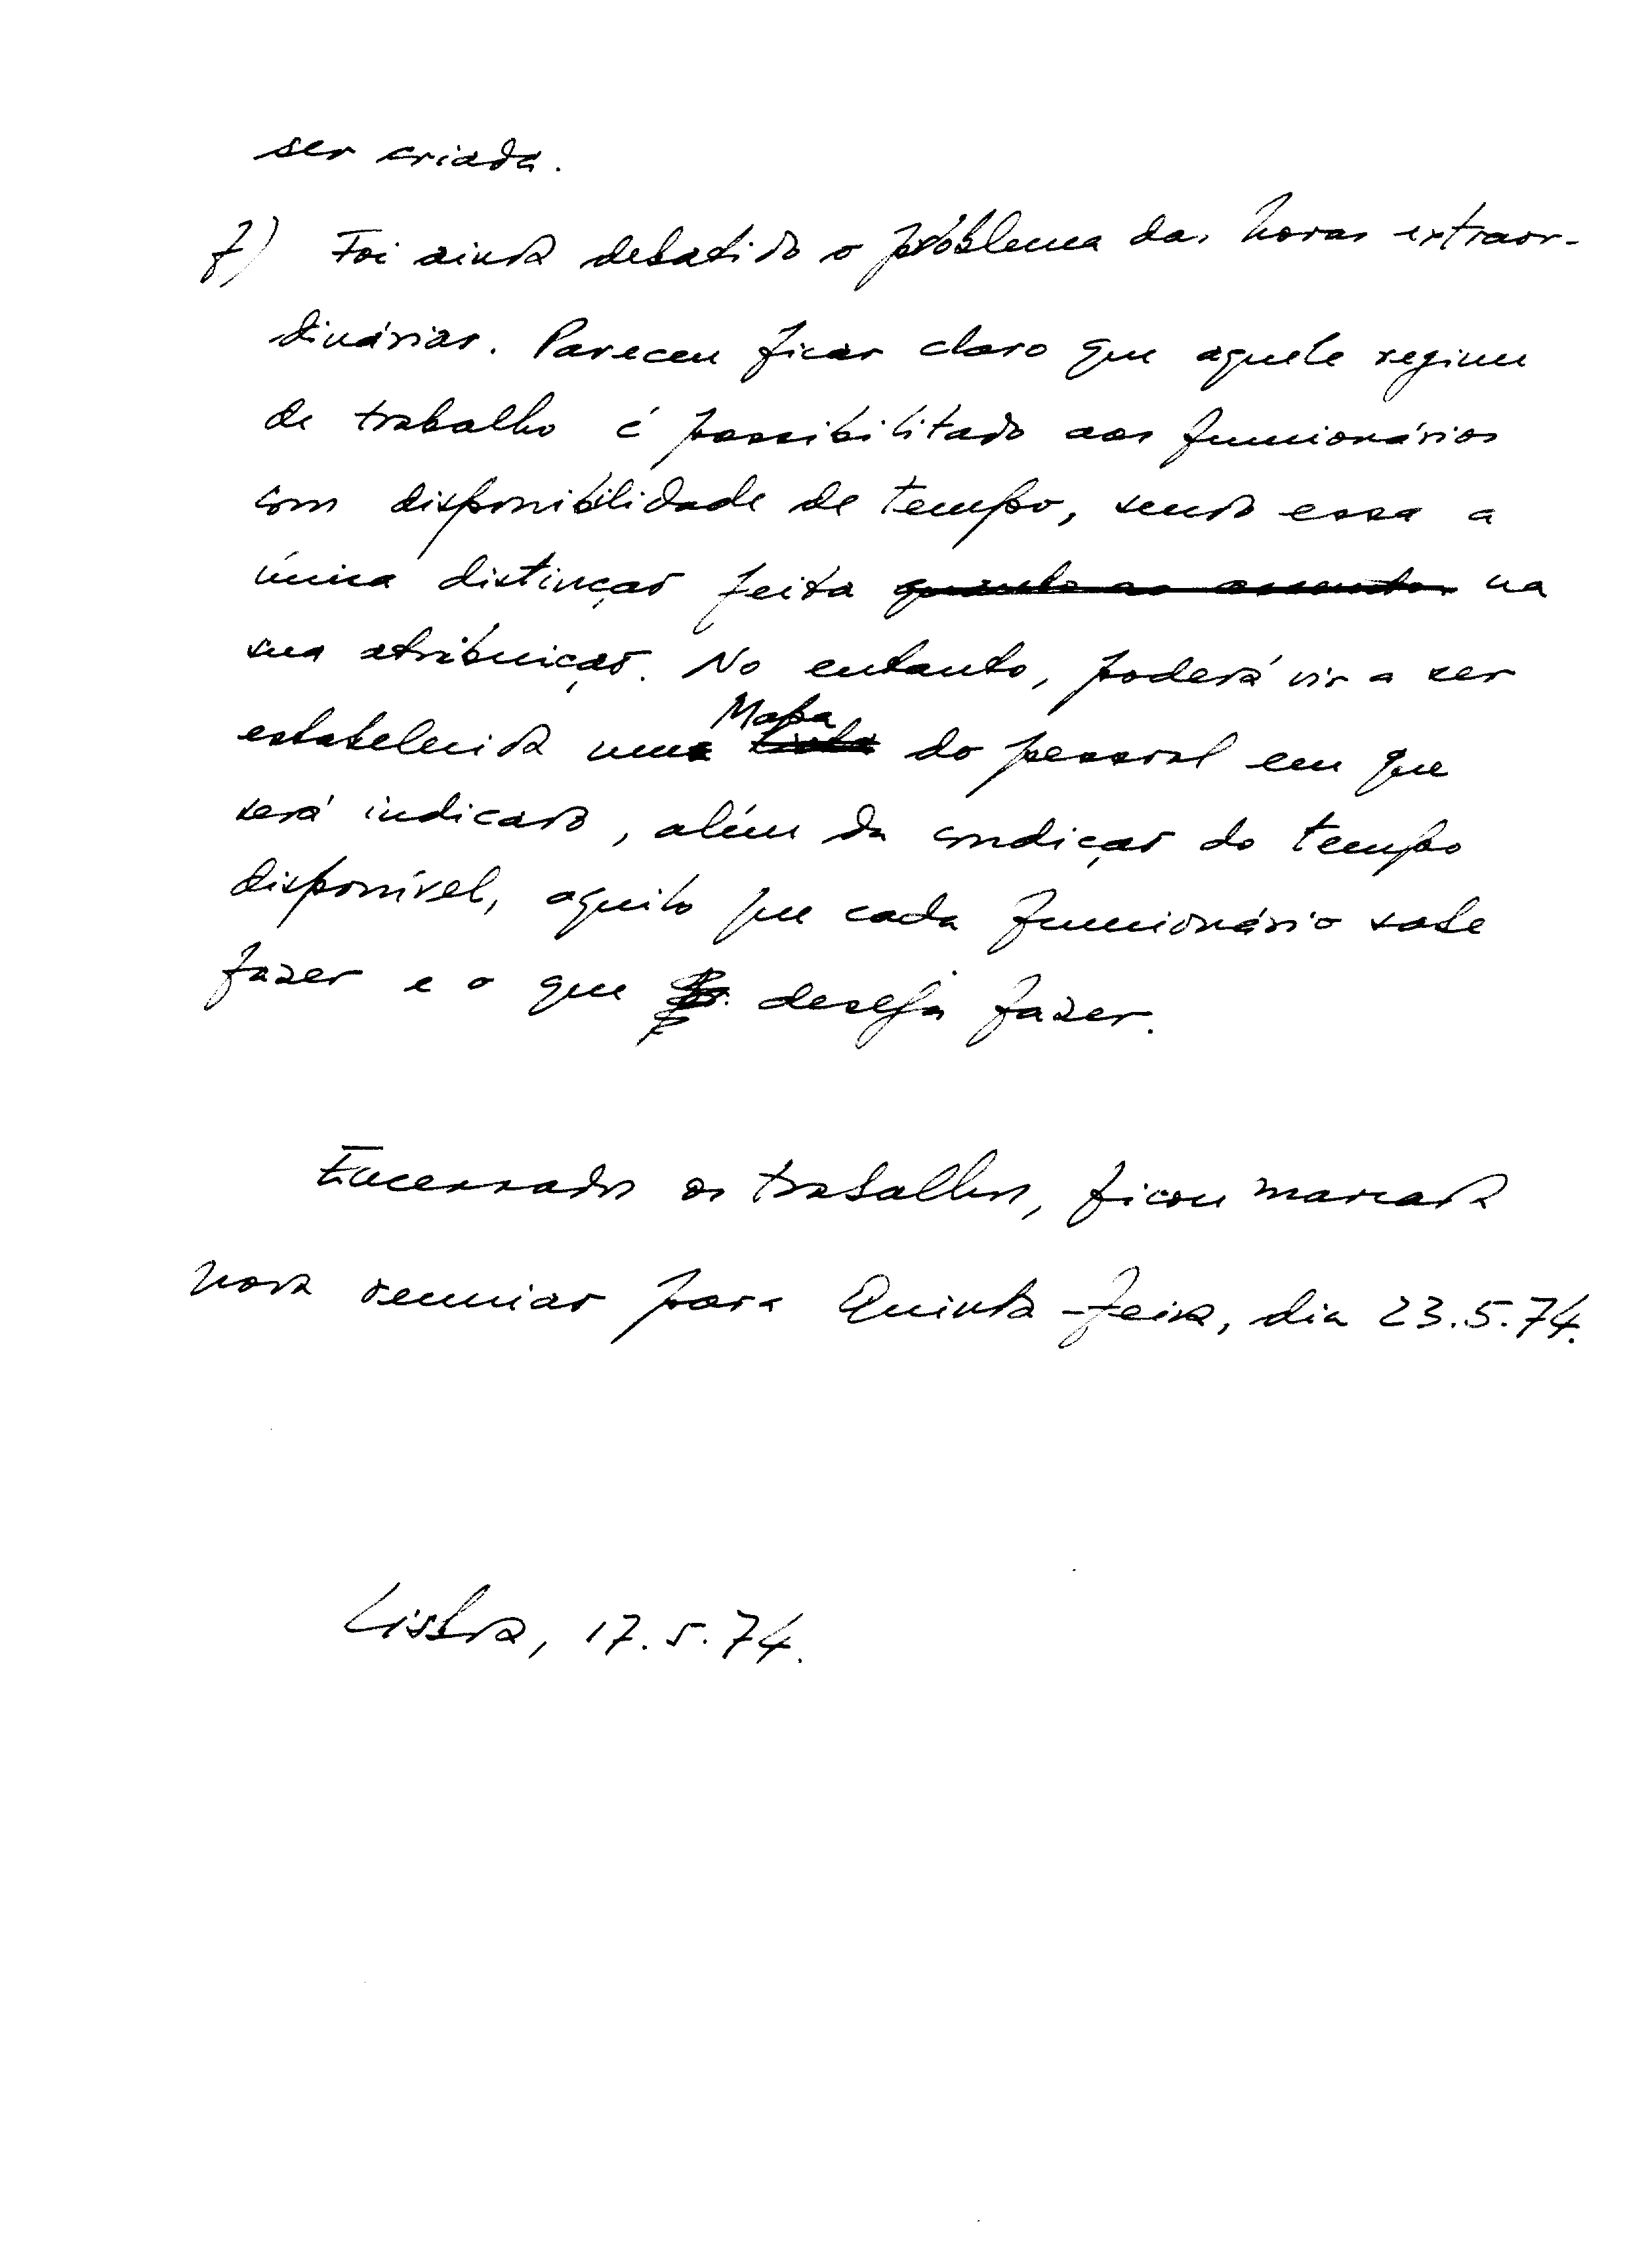 ser criada.
f) Foi ainda debatido o problema das horas extraor-
dinárias. Pareceu ficar claro que aquele regime
de trabalho é possibilitado aos funcionários
com disponibilidade de tempo, sendo essa a
única distinção feita quanto ao assunto na
sua atribuição. No entanto, poderá vir a ser
Mapa
estabelecida uma lista do pessoal em que
será indicado, além da condição do tempo
disponível, aquilo que cada funcionário sabe
fazer e o que deseja fazer.
Encerrados os trabalhos, ficou marcada
nova reunião para Quinta-feira, dia 23.5.74.
Lisboa, 17.5.74.